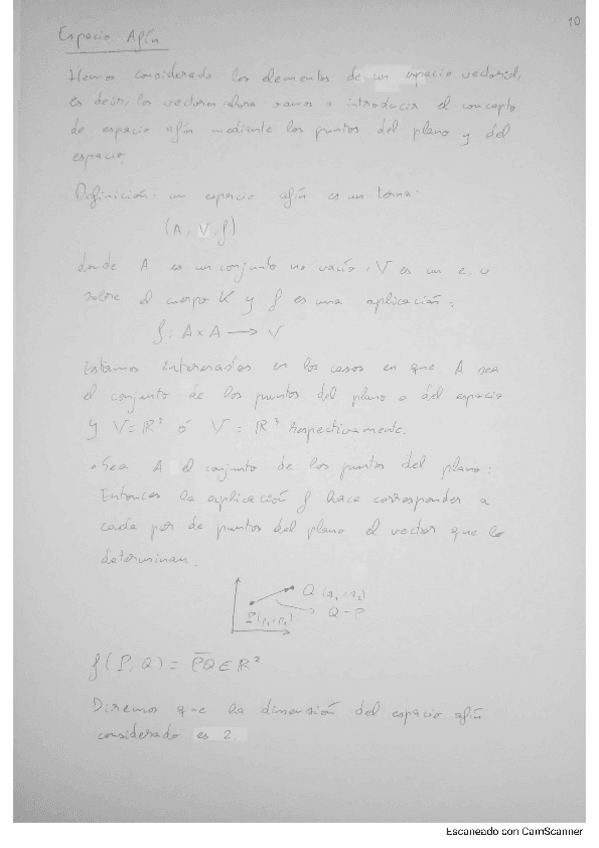 10
Espacio Afín
Hemos considerado los elementos de un espacio vectorial,
es decir, los vectores ahora vamos a introducir el concepto
de espacio afín mediante los puntos del plano y del
espacio.
Definición: un espacio afín es un terna:
(A, V, f)
donde A es un conjunto no vacío, V es un e.v
sobre el cuerpo K y f es una aplicación:
f: A x A → V
Estamos interesados en los casos en que A sea
el conjunto de los puntos del plano o del espacio
y V = R² ó V = R³ respectivamente.
• Sea A el conjunto de los puntos del plano:
Entonces la aplicación f hace corresponder a
cada par de puntos del plano el vector que lo
determinan.
Q (q₁, q₂)
P(p₁, p₂)
Q - P
f(P, Q) = PQ ∈ R²
Diremos que la dimensión del espacio afín
considerado es 2.
Escaneado con CamScanner